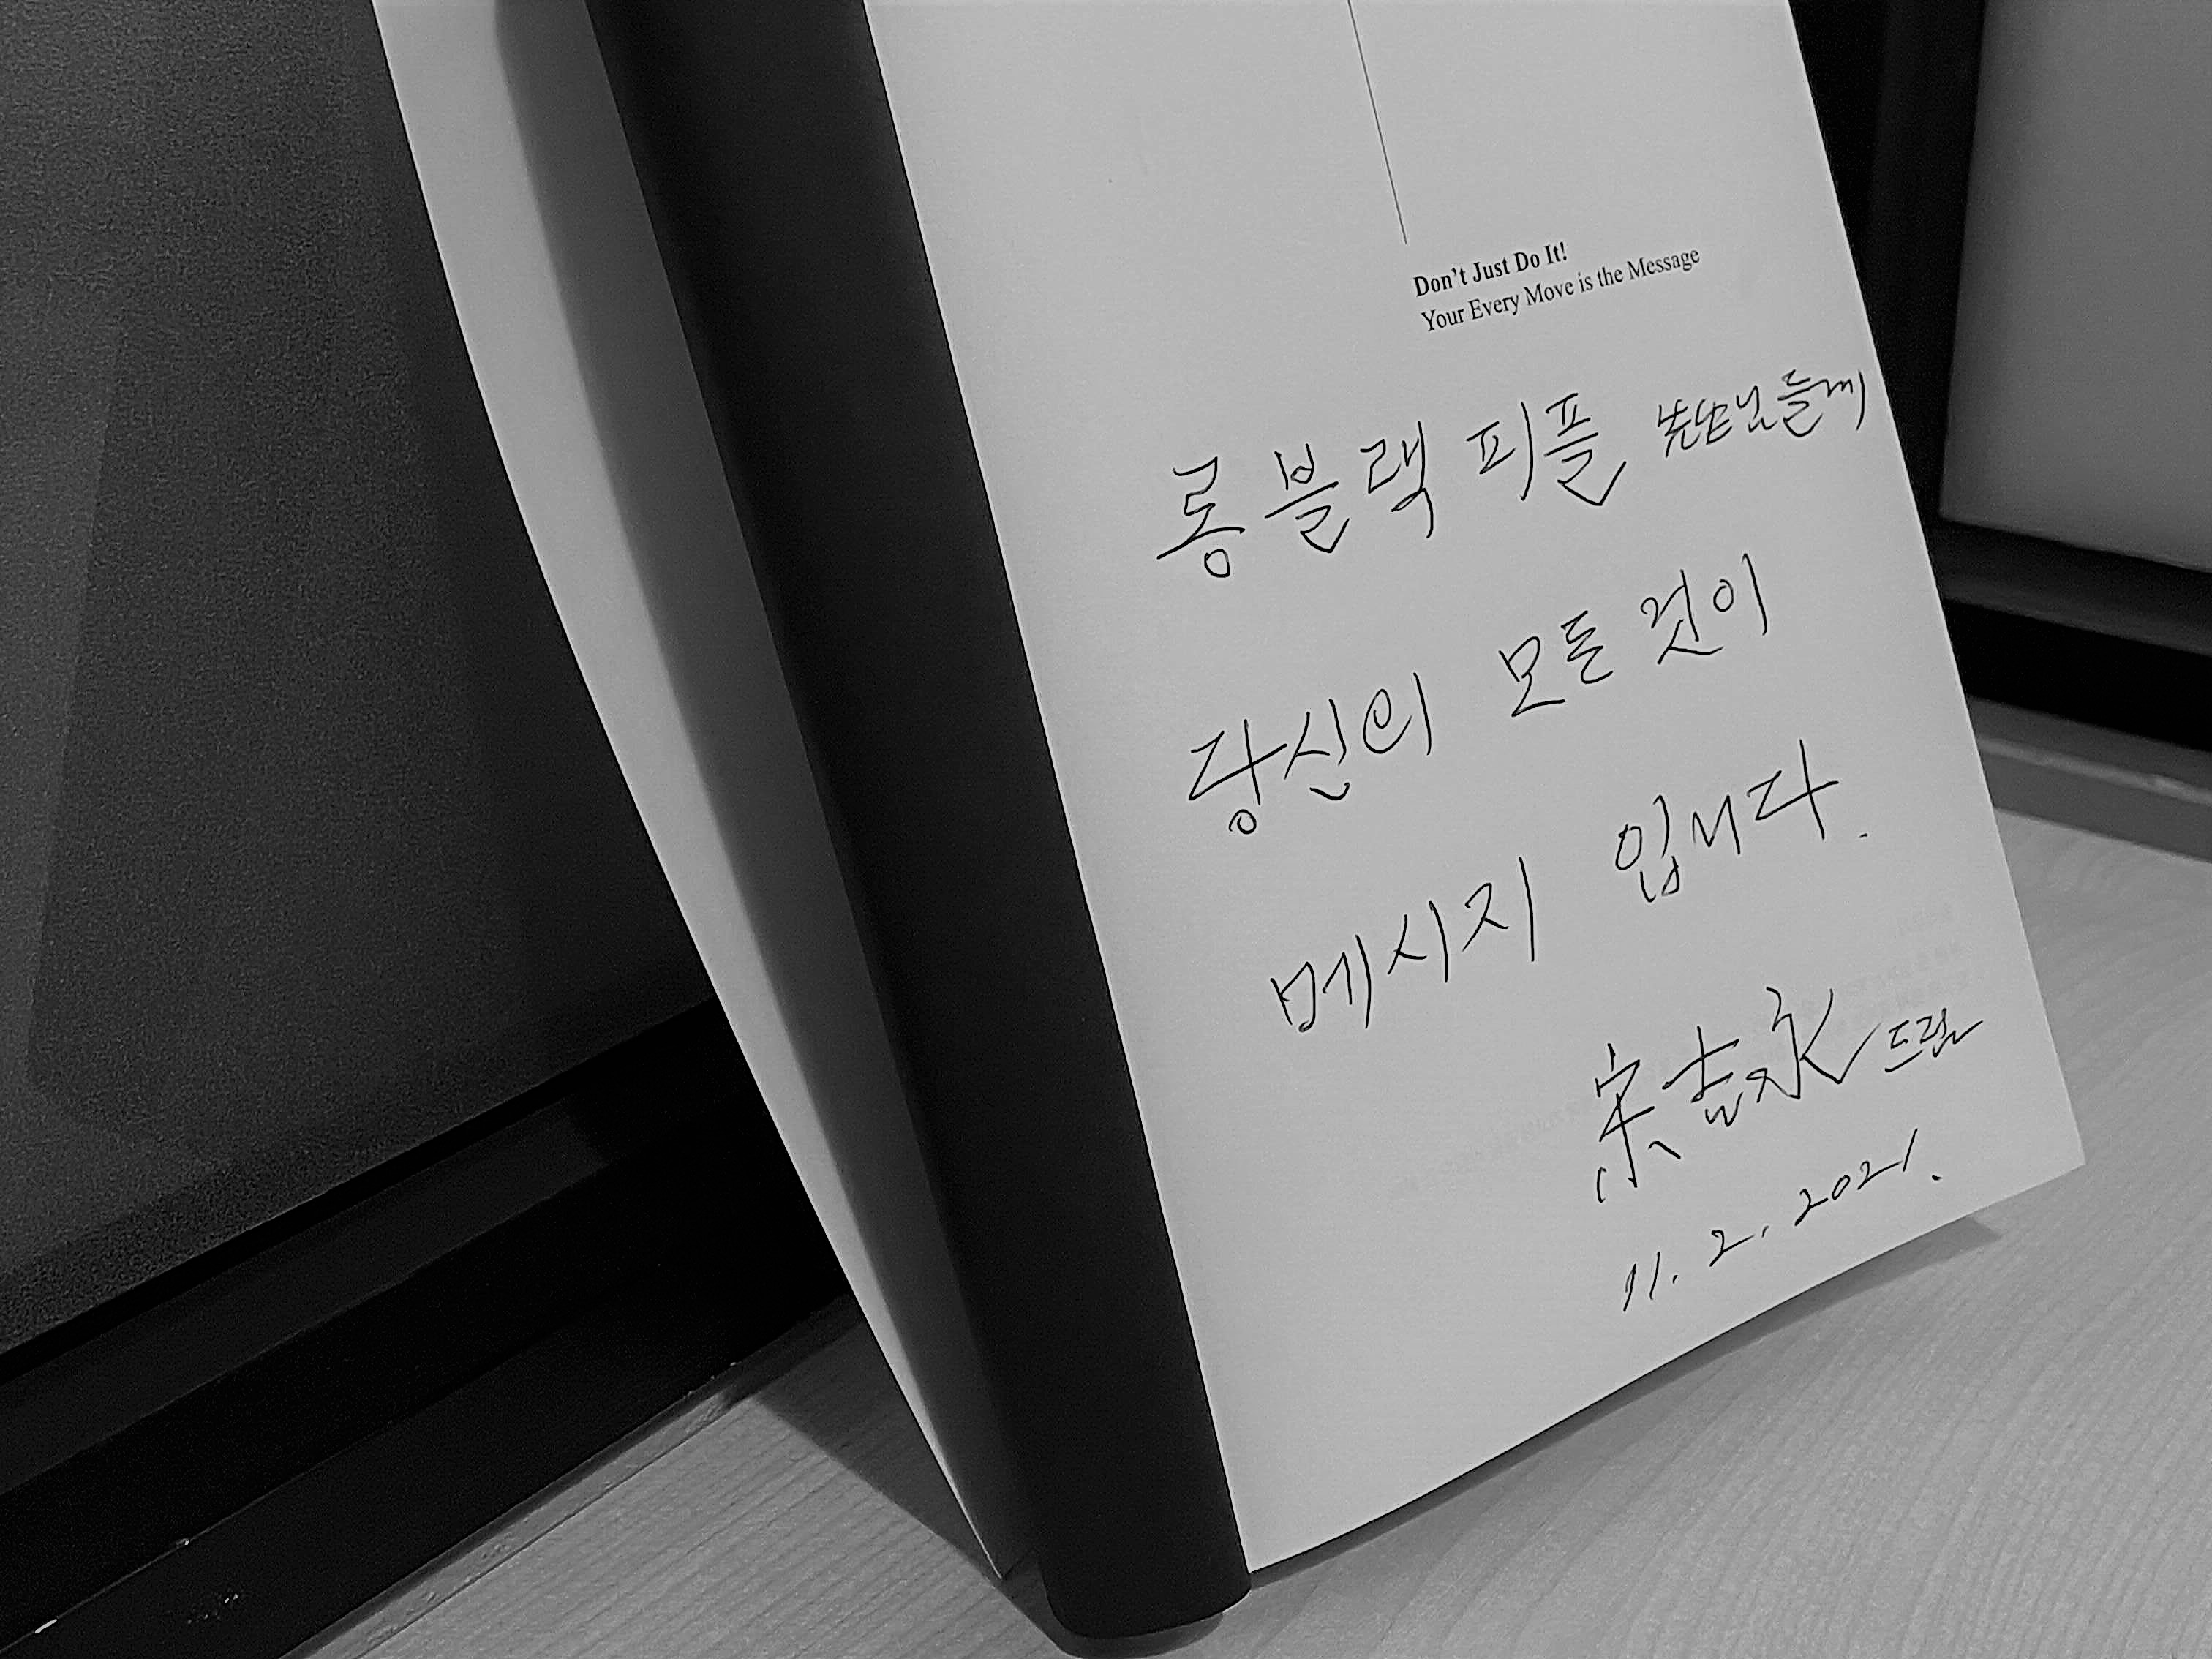 Don't Just Do It!
Your Every Move is the Message
롱블랙 피플 先生님들께
당신의 모든 것이
메시지 입니다.
宋吉永 드림
11. 2. 2021.